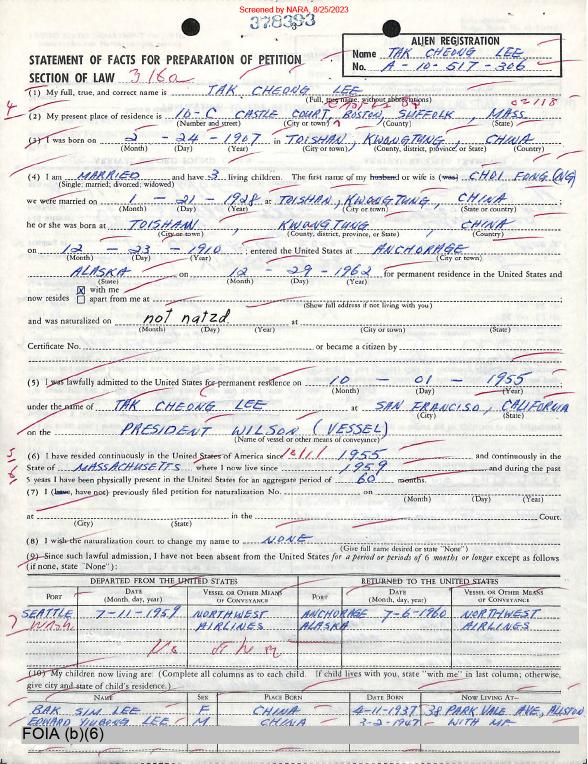 Screened by NARA, 8/25/2023
378393
ALIEN REGISTRATION
Name TAK CHEONG LEE
No. A-10-517-306
STATEMENT OF FACTS FOR PREPARATION OF PETITION
SECTION OF LAW 316a
(1) My full, true, and correct name is TAK CHEONG LEE
(Full, true name, without abbreviations)
(2) My present place of residence is 10-C CASTLE COURT, BOSTON, SUFFOLK, MASS. 02118
(Number and street) (City or town) (County) (State)
(3) I was born on 2 - 24 - 1907 in TOISHAN, KWONGTUNG, CHINA
(Month) (Day) (Year) (City or town) (County, district, province or State) (Country)
(4) I am MARRIED and have 3 living children. The first name of my husband or wife is (was) CHOI FONG (NG)
(Single; married; divorced; widowed)
we were married on 1 - 21 - 1928 at TOISHAN, KWONGTUNG, CHINA
(Month) (Day) (Year) (City or town) (State or country)
he or she was born at TOISHAN, KWONGTUNG, CHINA
(City or town) (County, district, province, or State) (Country)
on 12 - 23 - 1910; entered the United States at ANCHORAGE
(Month) (Day) (Year) (City or town)
ALASKA on 12 - 29 - 1962 for permanent residence in the United States and
(State) (Month) (Day) (Year)
now resides X with me
apart from me at
(Show full address if not living with you)
and was naturalized on not natzd at
(Month) (Day) (Year) (City or town) (State)
Certificate No. or became a citizen by
(5) I was lawfully admitted to the United States for permanent residence on 10 - 01 - 1955
(Month) (Day) (Year)
under the name of TAK CHEONG LEE at SAN FRANCISO, CALIFORNIA
(City) (State)
on the PRESIDENT WILSON (VESSEL)
(Name of vessel or other means of conveyance)
(6) I have resided continuously in the United States of America since 1955 and continuously in the
State of MASSACHUSETTS where I now live since 1959 and during the past
5 years I have been physically present in the United States for an aggregate period of 60 months.
(7) I (have, have not) previously filed petition for naturalization No. on
(Month) (Day) (Year)
at in the Court.
(City) (State)
(8) I wish the naturalization court to change my name to NONE
(Give full name desired or state "None")
(9) Since such lawful admission, I have not been absent from the United States for a period or periods of 6 months or longer except as follows
(if none, state "None"):
DEPARTED FROM THE UNITED STATES RETURNED TO THE UNITED STATES
PORT DATE (Month, day, year) VESSEL OR OTHER MEANS OF CONVEYANCE PORT DATE (Month, day, year) VESSEL OR OTHER MEANS OF CONVEYANCE
SEATTLE 7-11-1959 NORTHWEST ANCHORAGE 7-6-1960 NORTHWEST
Wash. AIRLINES ALASKA AIRLINES
(10) My children now living are: (Complete all columns as to each child. If child lives with you, state "with me" in last column; otherwise,
give city and state of child's residence.)
NAME SEX PLACE BORN DATE BORN NOW LIVING AT—
BAK SIM LEE F CHINA 4-11-1937 38 PARK VALE AVE, ALLSTON
EDWARD LEE M CHINA 3-2-1947 WITH ME
FOIA (b)(6)